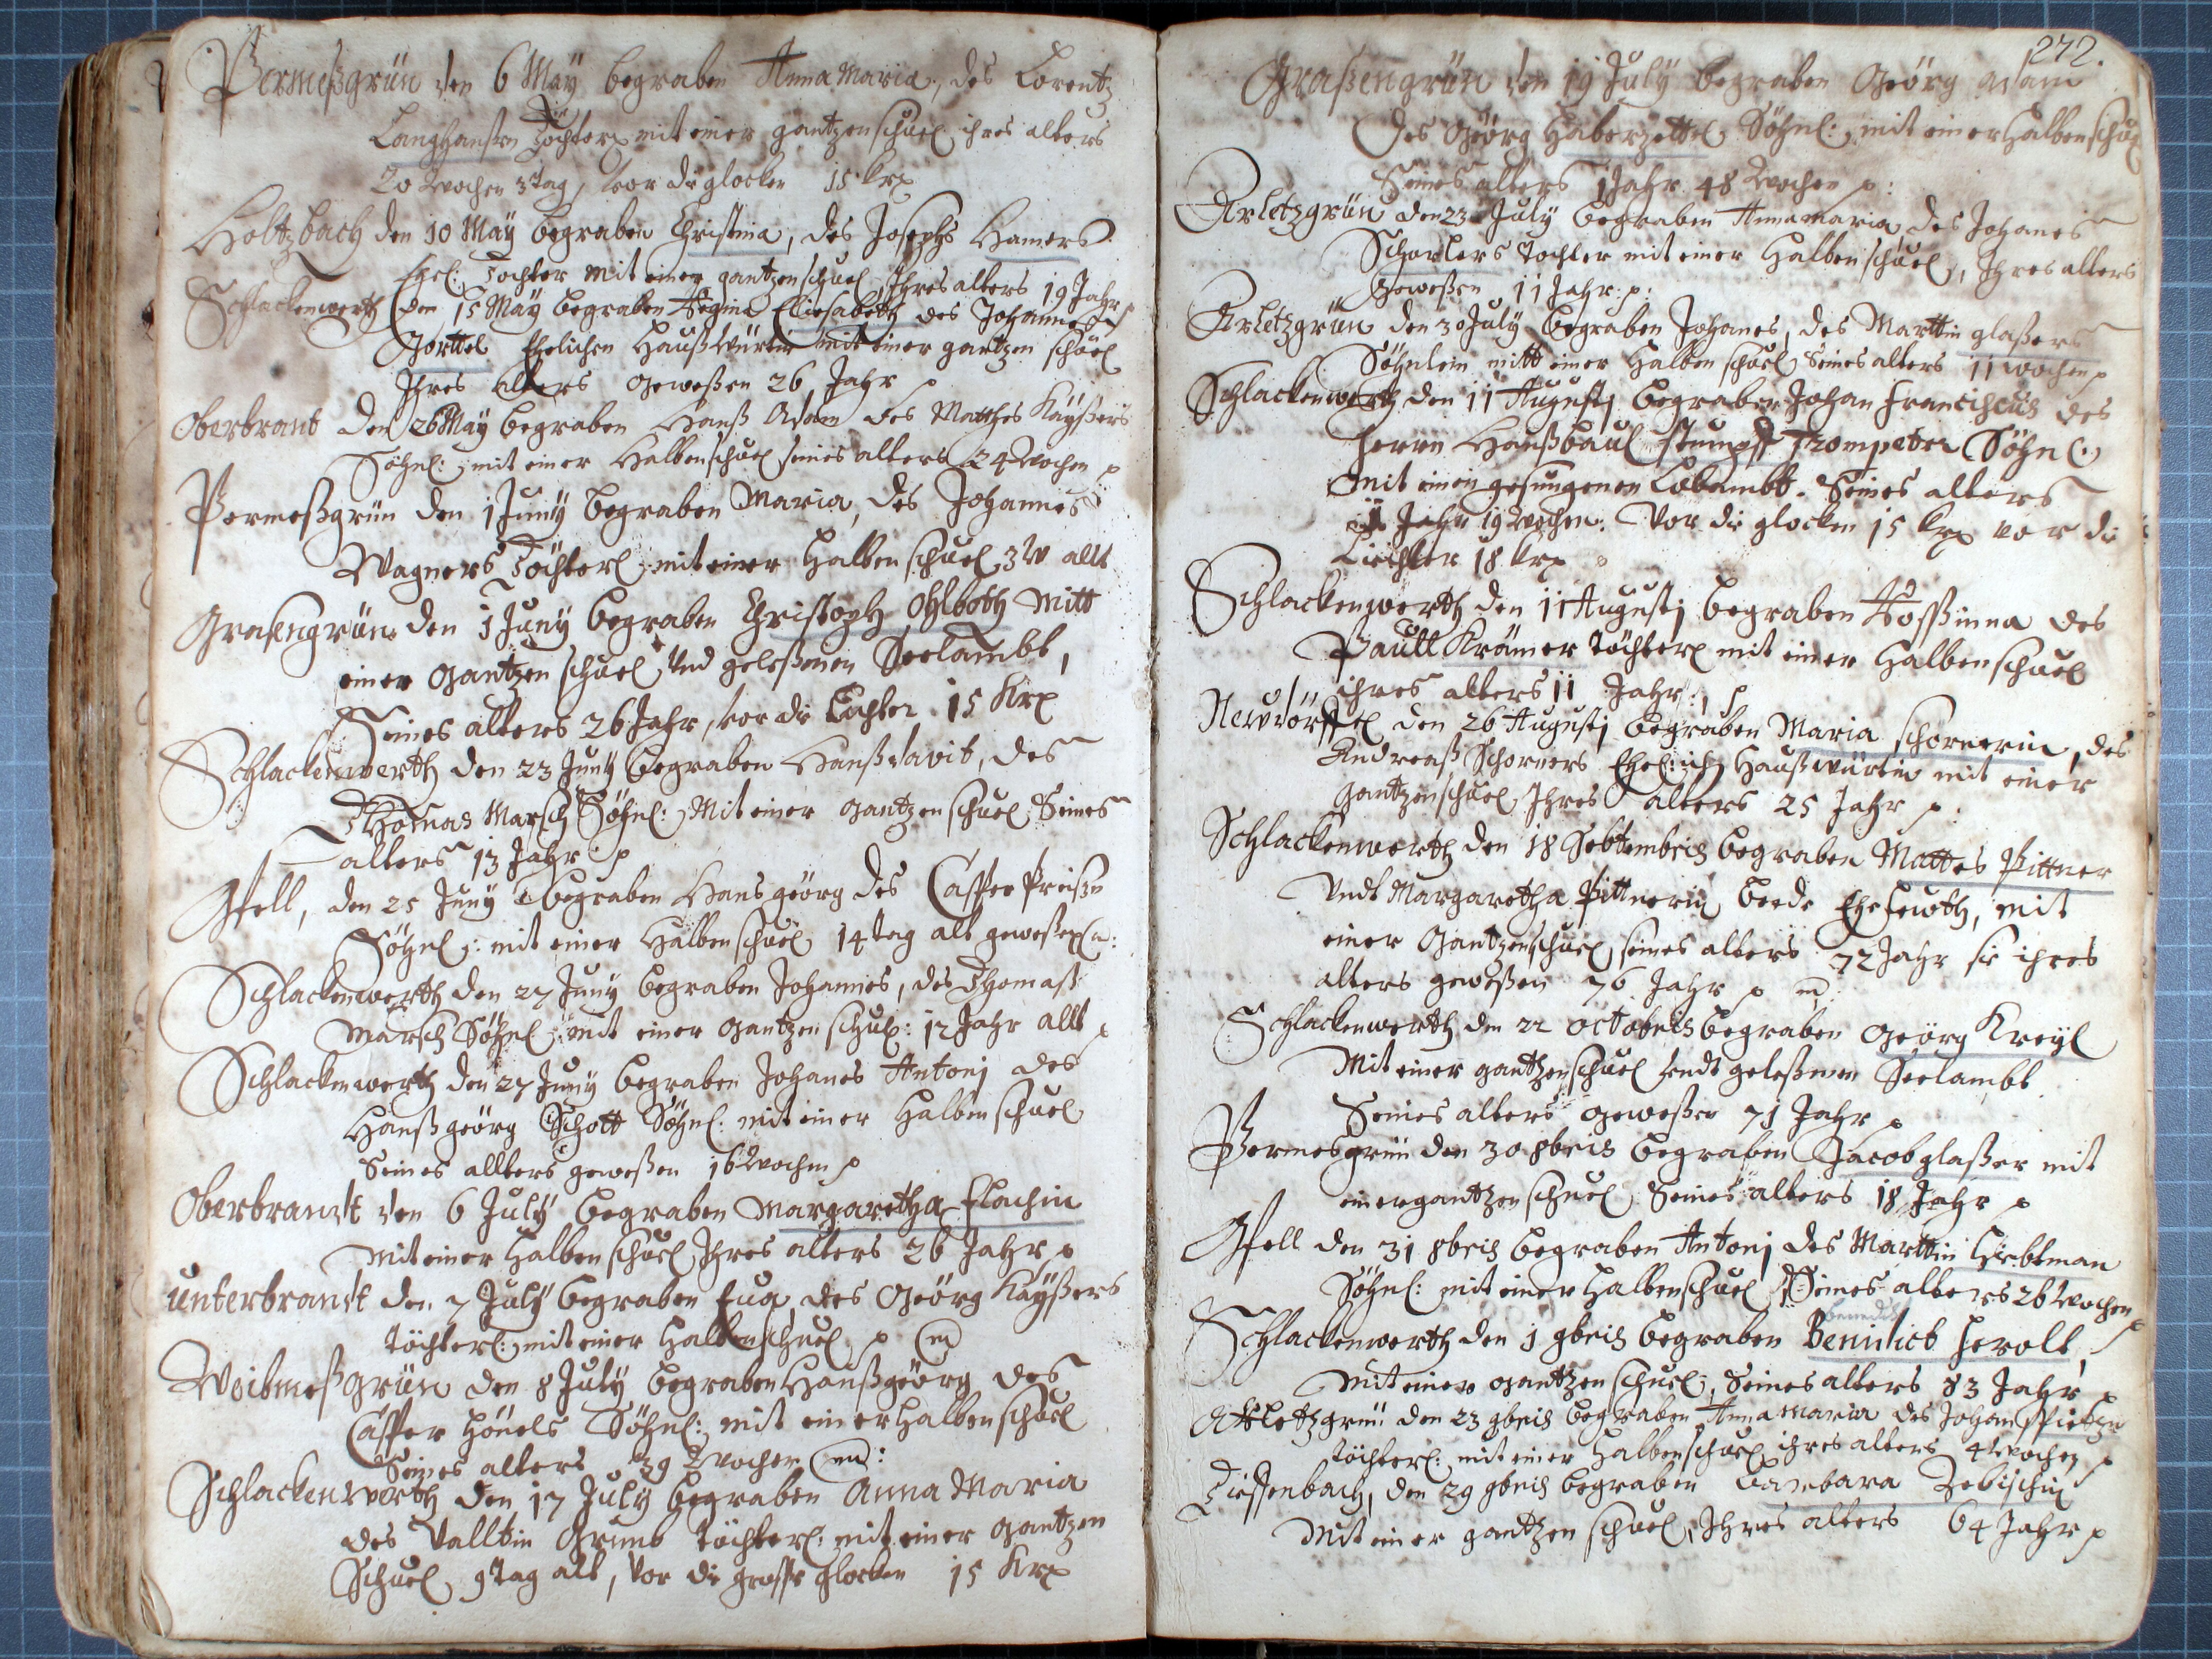 Permeßgrün den 6 May begraben Anna Maria, des Lorentz
Langhanßen Tochterl mit einer gantzen schuel ihres alters
20 Wochen 3 tag, vor die glocken 15 krx
Holtzbach den 10 May begraben Christina, des Josephs Hamers
Ehel: Tochter mit einer gantzen schuel, Ihres alters 19 Jahr
Schlackenwerth den 15 May begraben Regina Eliesabeth des Johannes
Gorttel Ehelichen Haußwürtin mit einer gantzen schuel
Ihres alters geweßen 26 Jahr
Oberbrant den 26 May begraben Hanß Adam des Matthes Kayßers
Söhnl: mit einer Halben schuel seines alters 24 Wochen
Permeßgrün den 1 Juny begraben Maria, des Johannes
Wagners Töchterl mit einer Halben schuel 3 W allt
Graßengrün den 1 Juny begraben Christoph Ohlboth Mitt
einer gantzen schuel Und geleßenen Seelambt,
Seines alters 26 Jahr, vor die Lichter 15 Krx
Schlackenwerth den 23 Juny begraben Hanß davit, des
Thomas Marsch Söhnl: Mit einer gantzen schuel Seines
alters 13 Jahr
Gfell, den 25 Juny begraben Hans georg des Casper Preißn
Söhnl: mit einer Halben schuel 14 tag alt geweßen
Schlackenwerth den 27 Juny begraben Johannes, des Thomaß
Marsch Söhnl: mit einer gantzen schul: 12 Jahr allt
Schlackenwerth den 27 Juny begraben Johanes Antonj des
Hanß georg Schott Söhnl: mit einer Halben schuel
Seines allters geweßen 16 Wochen
Oberbrandt den 6 July begraben Margaretha Flachin
Mit einer Halben schuel Ihres alters 26 Jahr
unterbrandt den 7 July begraben Eua, des Georg Kayßers
töchterl: mit einer Halben schuel
Weitmeßgrün den 8 July begraben Hanß georg des
Casper Hönels Söhnl: mit einer Halben schuel
Seines alters 39 Wochen
Schlackenwerth den 17 July begraben Anna Maria
des Valltin Grumb töchterl: mit einer gantzen
Schuel 9 tag alt, vor die große Glocken 15 Krx
272.
Graßengrün den 19 July begraben Georg Adam
des Georg Haberzettel Söhnl: mit einer Halben schuel
Seines alters 1 Jahr 48 Wochen
Arletzgrün den 23 July begraben Anna Maria des Johanes
Scharlers tochter mit einer Halben schuel, Ihres alters
geweßen 11 Jahr
Arletzgrün den 30 July begraben Johanes, des Marttin glaßers
Söhnlein mitt einer Halben schuel Seines alters 11 wochen
Schlackenwerth den 11 Augustj begraben Johan Francischus des
Herrn Hanß baul Stumpff Trompeter Söhnl:
mit einen gesungenen Lobambt. Seines alters
Jahr 19 Wochen. Vor die glocken 15 krx vor die
Liechter 18 krx
Schlackenwerth den 11 Augustj begraben Rossinna des
Paull Krämer töchterl mit einer Halben schuel
ihres alters 11 Jahr
Newdörffel den 26 Augustj begraben Maria schornerin, des
Andreaß Schorners Ehelich Haußwürtin mit einer
gantzen schuel Ihres alters 25 Jahr
Schlackenwerth den 18 Sebtembris begraben Mattes Pittner
Undt Margaretha Pittnerin beede Ehelewth, mit
einer gantzen schuel, seines alters 72 Jahr sie ihres
alters geweßen 76 Jahr
Schlackenwerth den 22 octobris begraben Georg Kreyl
Mit einer gantzen schuel undt geleßenen Seelambt
Seines alters geweßen 71 Jahr
Permesgrün den 30 8bris begraben Jacob glaßer mit
einer gantzen schuel, Seines alters 18 Jahr
Gfell den 31 8bris begraben Antonj des Marttin Liebtman
Söhnl: mit einer Halben schuel, Seines alters 26 Wochen
Schlackenwerth den 1 9bris begraben Benidict Herolt,
mit einer gantzen schuel, Seines alters 83 Jahr
Arletzgrün den 23 9bris begraben Anna Maria des Johan
töchterl: mit einer Halben schuel ihres alters 4 Wochen
Tieffenbach, den 29 9bris begraben Barbara Zebischin
Mit einer gantzen schuel, Ihres alters 64 Jahr